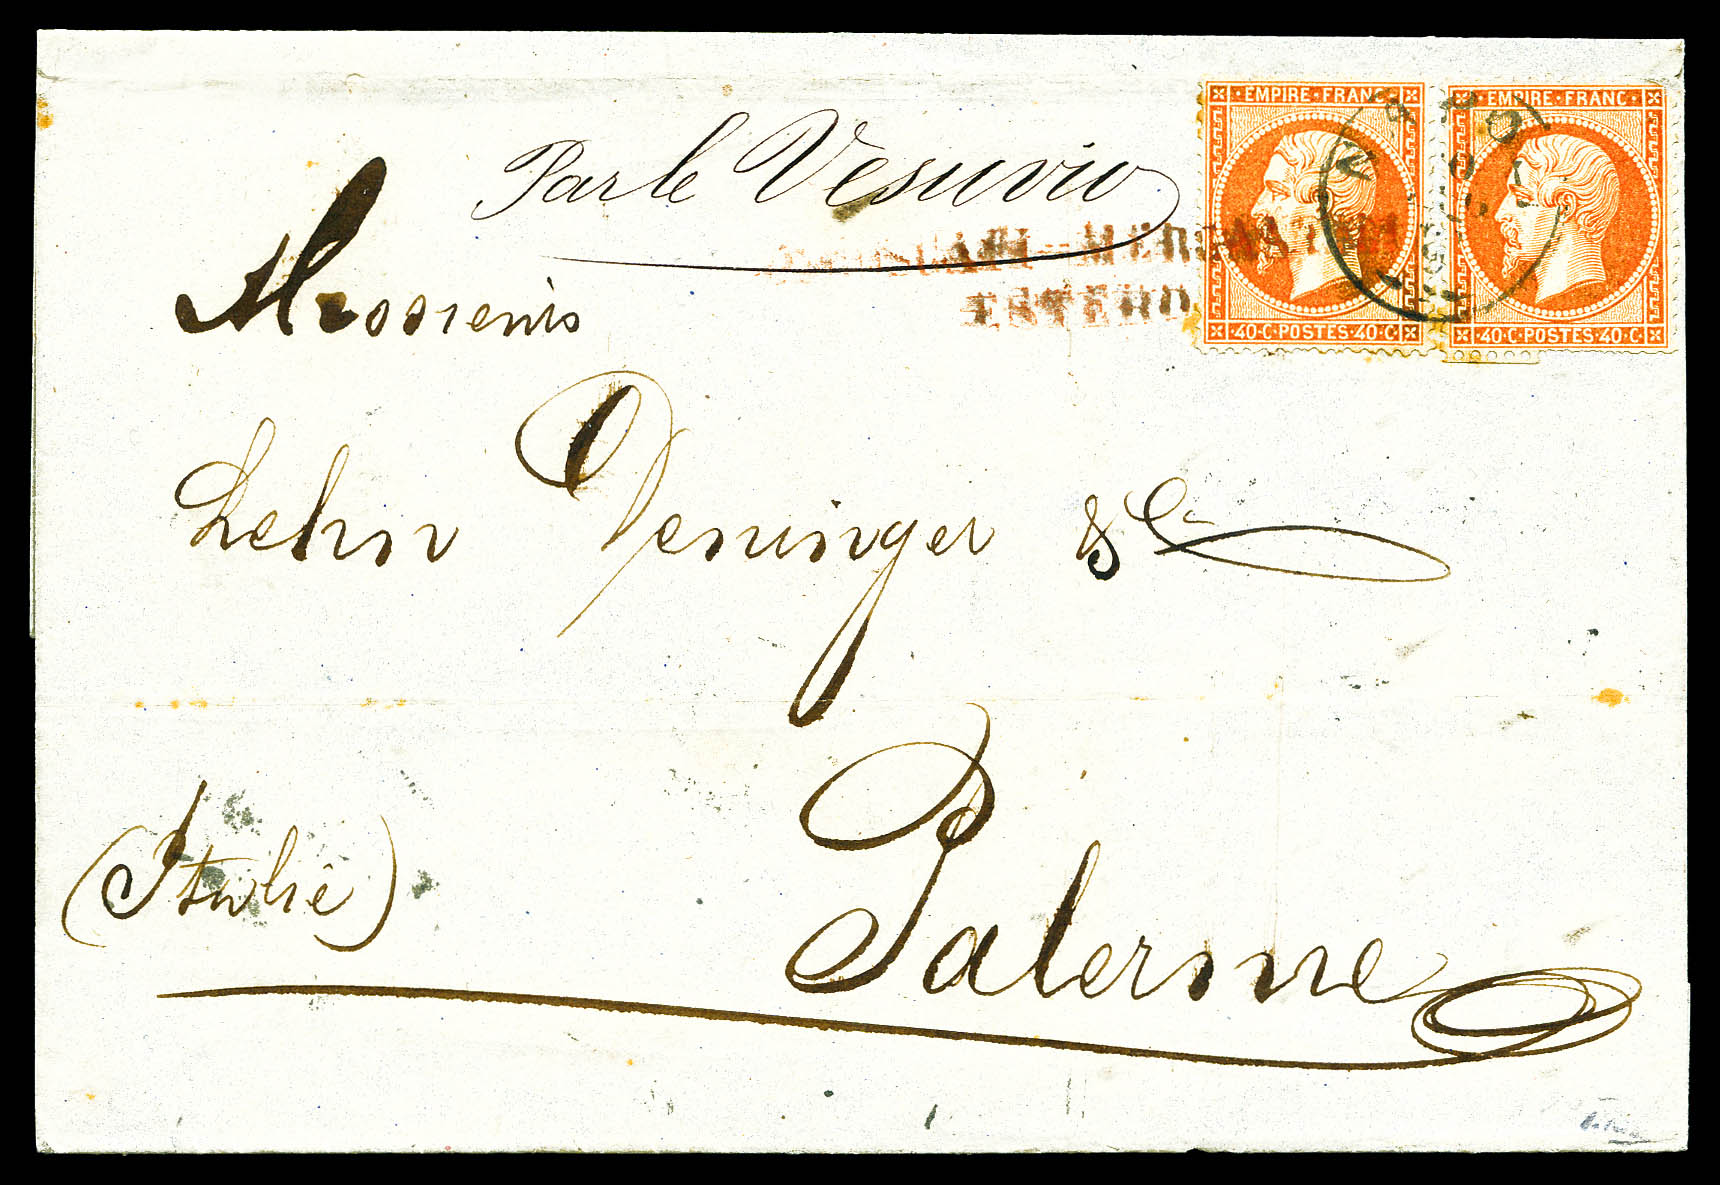 EMPIRE · FRANC ·
EMPIRE · FRANC ·
Par le Vesuvio
NAPO
· 40 · C · POSTES · 40 · C ·
· 40 · C · POSTES · 40 · C ·
Messieurs
Lehn Deninger & Cie
(Italie)
Palerme